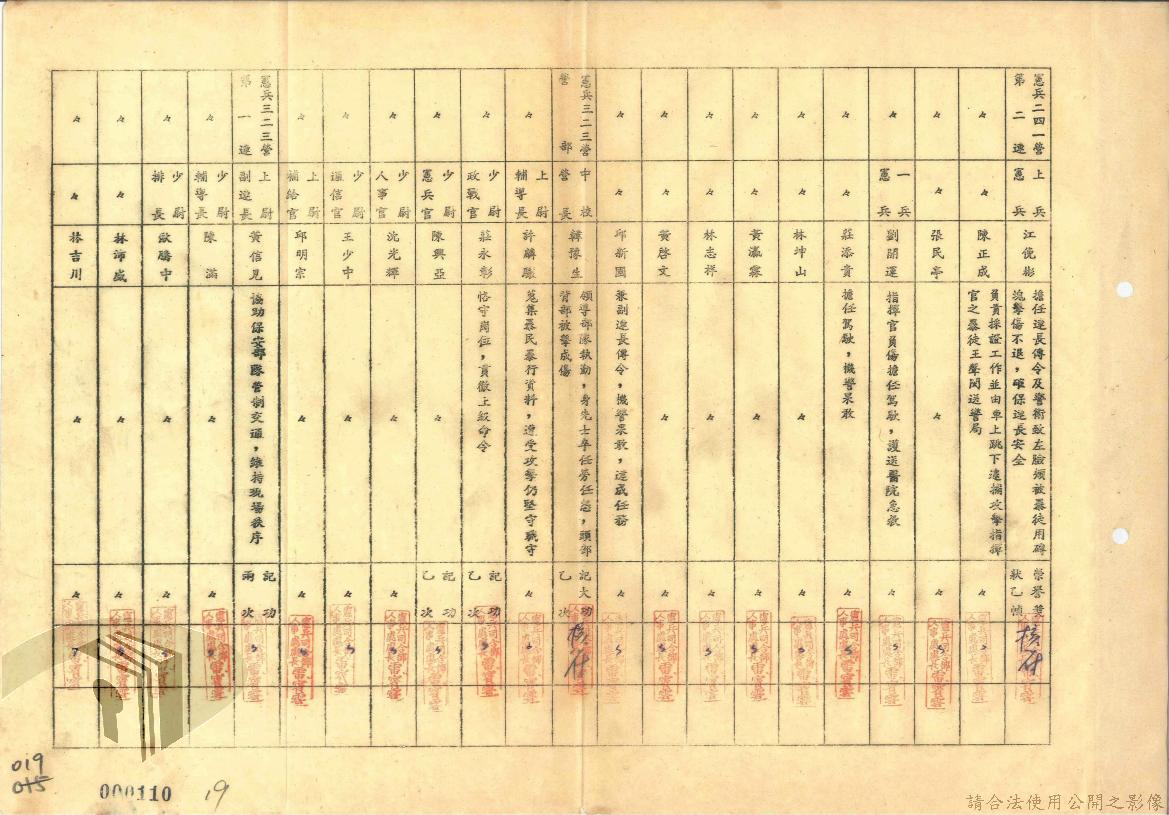 憲兵二四一營
第二連
上兵
憲兵
江俊彬
擔任連長傳令及警衛致左臉頰被暴徒用磚
塊擊傷不退，確保連長安全
榮譽獎
狀乙幀
核符
〃
〃
陳正成
負責採證工作並由車上跳下逮捕攻擊指揮
官之暴徒王聲閔送警局
〃
〃
張民亭
〃
〃
一兵
憲兵
劉開運
指揮官負傷擔任駕駛，護送醫院急救
〃
〃
莊添貴
擔任駕駛，機警果敢
〃
〃
林坤山
〃
〃
〃
黃瀛霖
〃
〃
〃
林志祥
〃
〃
〃
黃啓文
〃
〃
〃
邱新國
兼副連長傳令，機警果敢，達成任務
〃
憲兵三二三營
營部
中校
營長
韓豫生
領導部隊執勤，身先士卒任勞任怨，頭部
背部被擊成傷
記大功
乙次
核符
〃
上尉
輔導長
許麟
蒐集暴民暴行資料，遭受攻擊仍堅守職守
〃
〃
少尉
政戰官
莊永彰
恪守崗位，貫徹上級命令
記功
乙次
〃
少尉
憲兵官
陳興亞
〃
記功
乙次
〃
少尉
人事官
沈光輝
〃
〃
〃
少尉
通信官
王少中
〃
〃
〃
上尉
補給官
邱明宗
〃
〃
憲兵三二三營
第一連
上尉
副連長
黃信見
協助保安部隊管制交通，維持現場秩序
記功
兩次
〃
少尉
輔導長
陳滿
〃
〃
〃
少尉
排長
歐騰中
〃
〃
〃
〃
林沛盛
〃
〃
〃
〃
林吉川
〃
〃
019
015
000110
19
請合法使用公開之影像